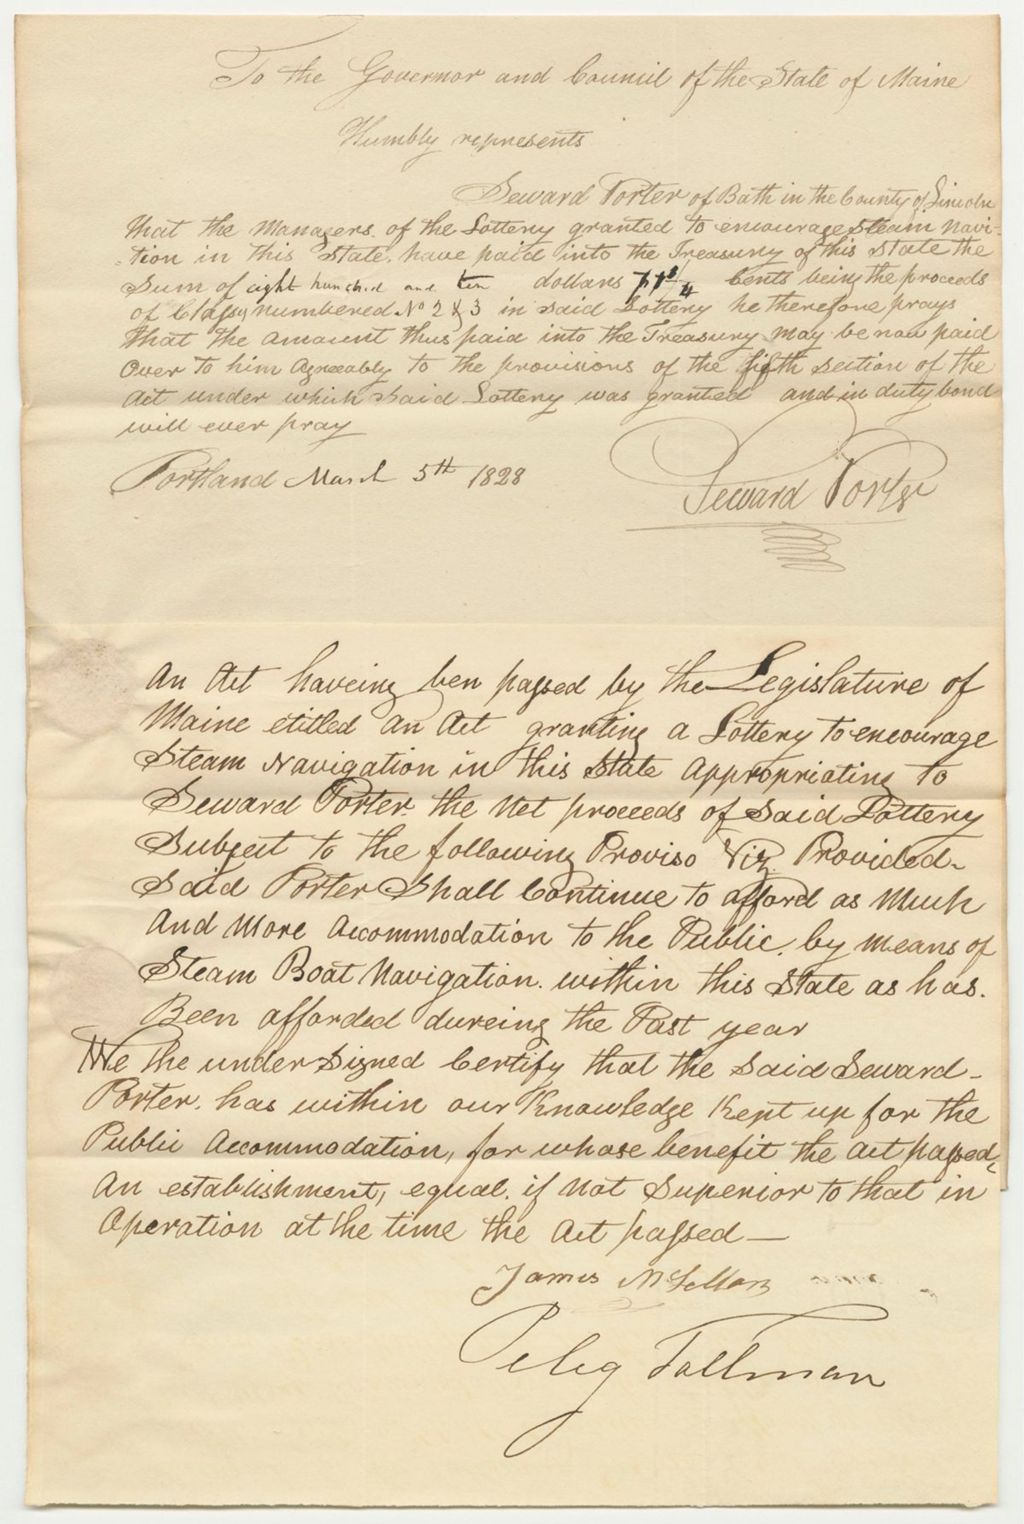 To the Governor and Council of the State of Maine
Humbly represents
Seward Porter of Bath in the County of Lincoln
that the Managers of the Lottery granted to encourage Steam Navi-
-tion in this State, have paid into the Treasury of this State the
Sum of eight hundred and ten dollars 71 1/4 Cents being the proceeds
of Classes numbered No 2 & 3 in said Lottery he therefore prays
that the amount thus paid into the Treasury may be now paid
over to him Agreeably to the provisions of the fifth section of the
Act under which said Lottery was granted and in duty bound
will ever pray
Portland March 5th 1828
Seward Porter
An Act haveing ben passed by the Legislature of
Maine etitled An Act granting a Lottery to encourage
Steam Navigation in this State Appropriating to
Seward Porter the Net proceeds of Said Lottery
Subject to the following Proviso Viz Provided-
Said Porter Shall Continue to afford as Much
And More Accommodation to the Public, by Means of
Steam Boat Navigation. within this State as has.
Been afforded dureing the Past year
We the under Signed Certify that the Said Seward-
Porter. has within our Knowledge Kept up for the
Public Accommodation, for whose benefit the Act passed,
An establishment, equal. if Not Superior to that in
Operation at the time the Act passed—
James McLellan
Peleg Tallman